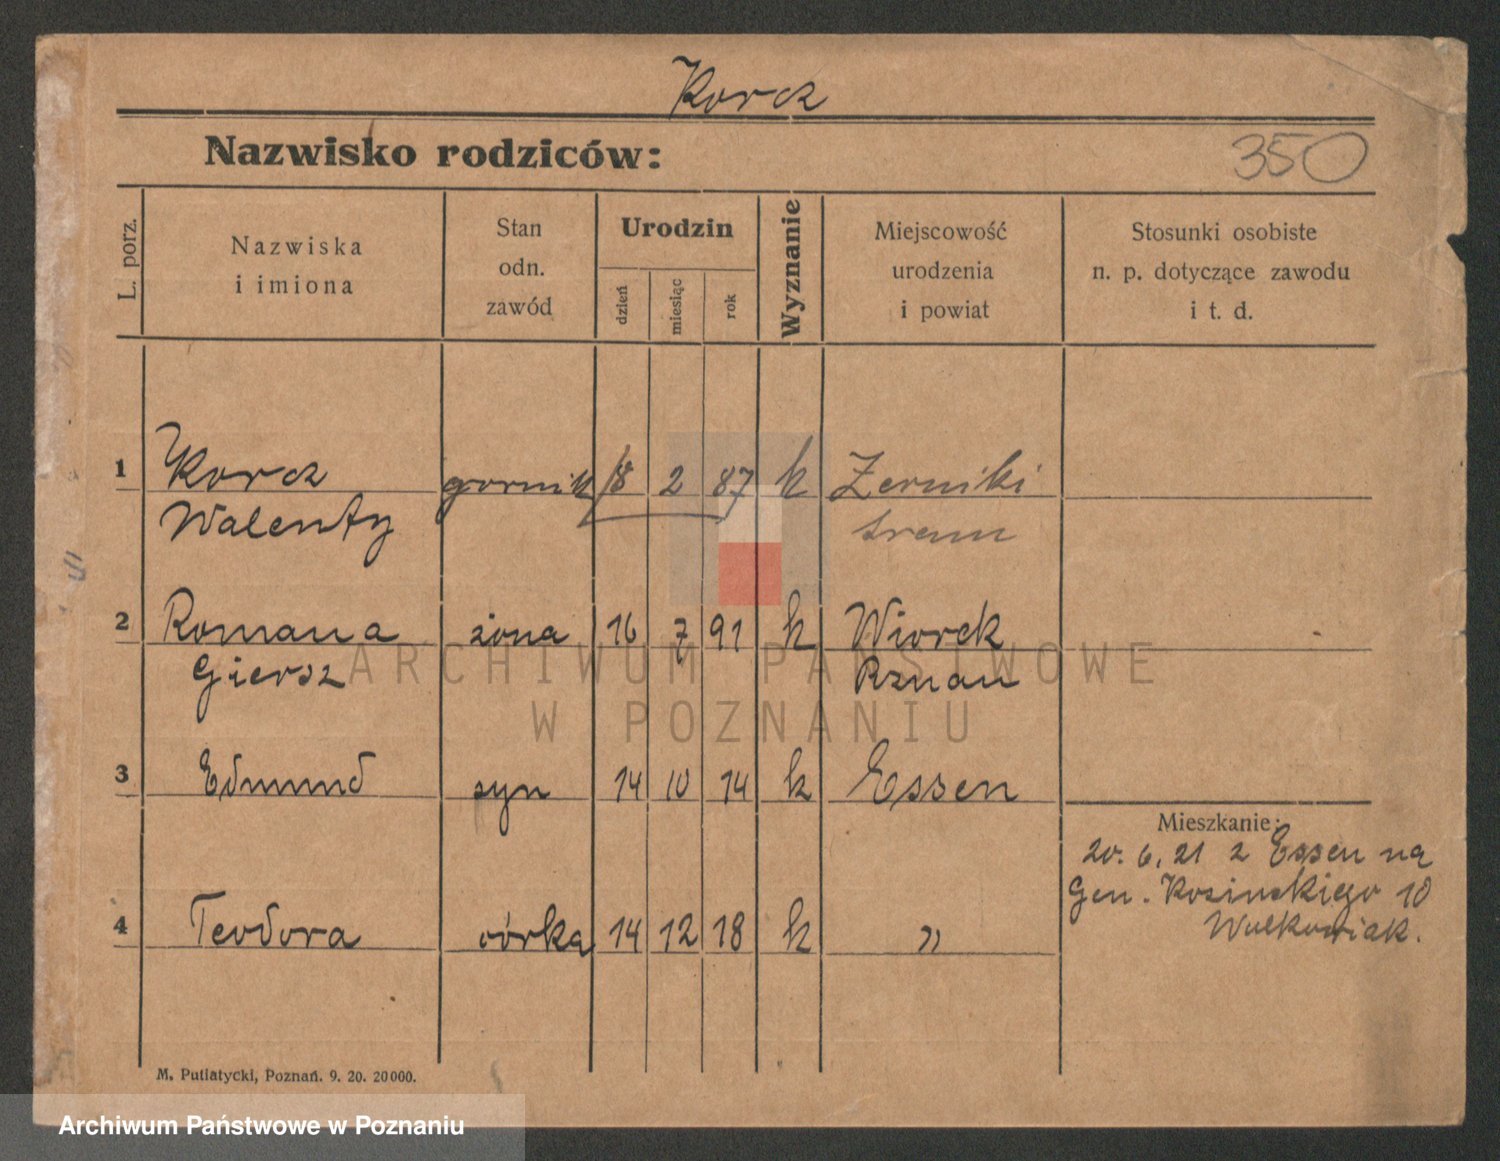 Korcz
Nazwisko rodziców:
350
L. porz.
Nazwiska
i imiona
Stan
odn.
zawód
Urodzin
dzień
miesiąc
rok
Wyznanie
Miejscowość
urodzenia
i powiat
Stosunki osobiste
n. p. dotyczące zawodu
i t. d.
1 Korcz gornik 18 2 87 k Zerniki
Walenty
2 Romana żona 16 7 91 k Wiorek
Giersz Pznań
3 Edmund syn 14 10 14 k Essen
Mieszkanie:
20. 6. 21 z Essen na
Gen. Kosinskiego 10
Walkowiak.
4 Teodora córka 14 12 18 k "
M. Putiatycki, Poznań. 9. 20. 20000.
ARCHIWUM PAŃSTWOWE
W POZNANIU
Archiwum Państwowe w Poznaniu